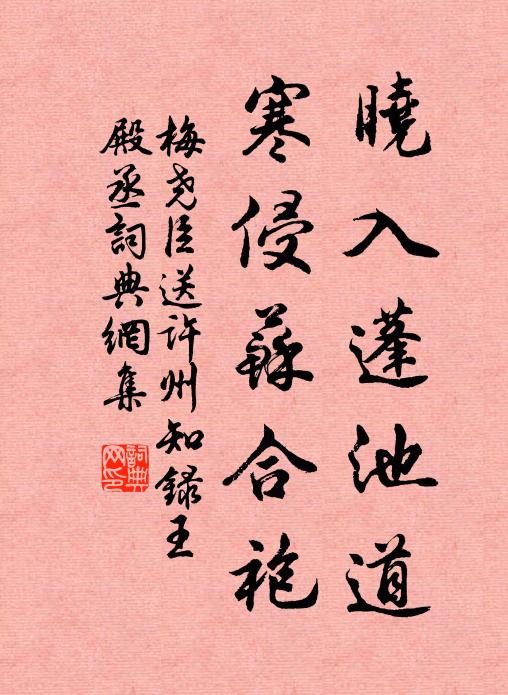 曉入蓬池道
寒侵蘇合袍
梅堯臣送許州知録王
殿丞詞典網集
詞典
网印